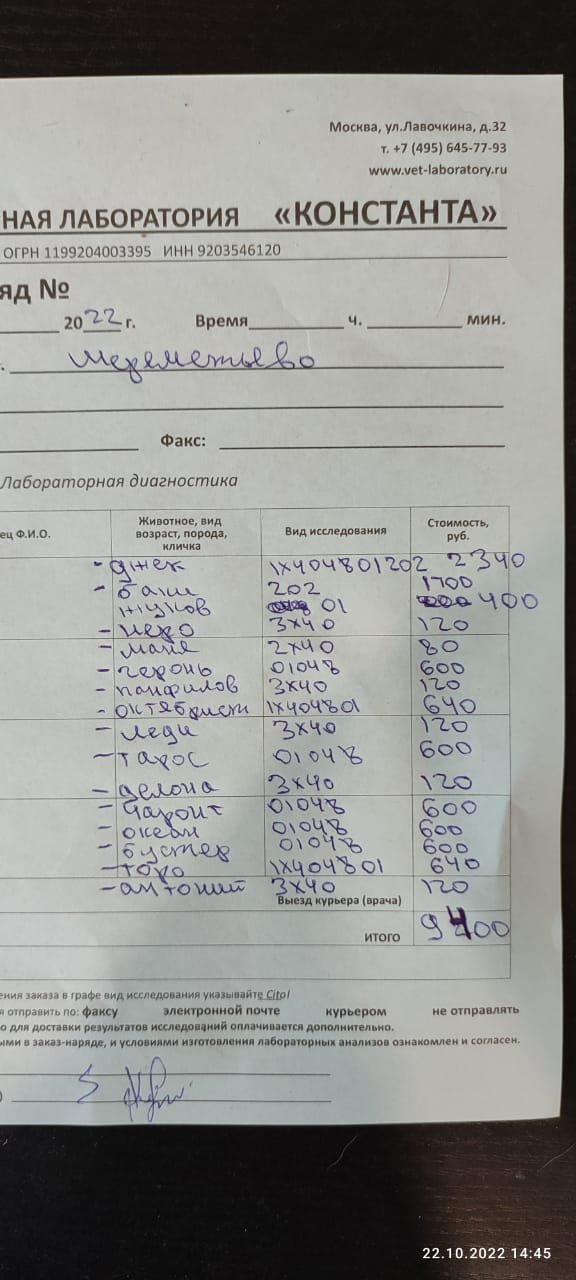 Москва, ул.Лавочкина, д.32
т. +7 (495) 645-77-93
www.vet-laboratory.ru
НАЯ ЛАБОРАТОРИЯ «КОНСТАНТА»
ОГРН 1199204003395 ИНН 9203546120
яд №
2022 г. Время ч. мин.
Шереметьево
Факс:
Лабораторная диагностика
ец Ф.И.О. Животное, вид возраст, порода, кличка Вид исследования Стоимость, руб.
- Джек 1х404801202 2340
- баш 202 1700
жуков 01 400
- неро 3х40 120
- маня 2х40 80
- герань 01048 600
- панфилов 3х40 120
- октябрист 1х404801 640
- леди 3х40 120
- тарос 01048 600
- делона 3х40 120
- чароит 01048 600
- океан 01048 600
- бустер 01048 600
- торо 1х404801 640
- антоний 3х40 120
Выезд курьера (врача)
ИТОГО 9400
ения заказа в графе вид исследования указывайте Cito!
я отправить по: факсу электронной почте курьером не отправлять
о для доставки результатов исследований оплачивается дополнительно.
ыми в заказ-наряде, и условиями изготовления лабораторных анализов ознакомлен и согласен.
22.10.2022 14:45